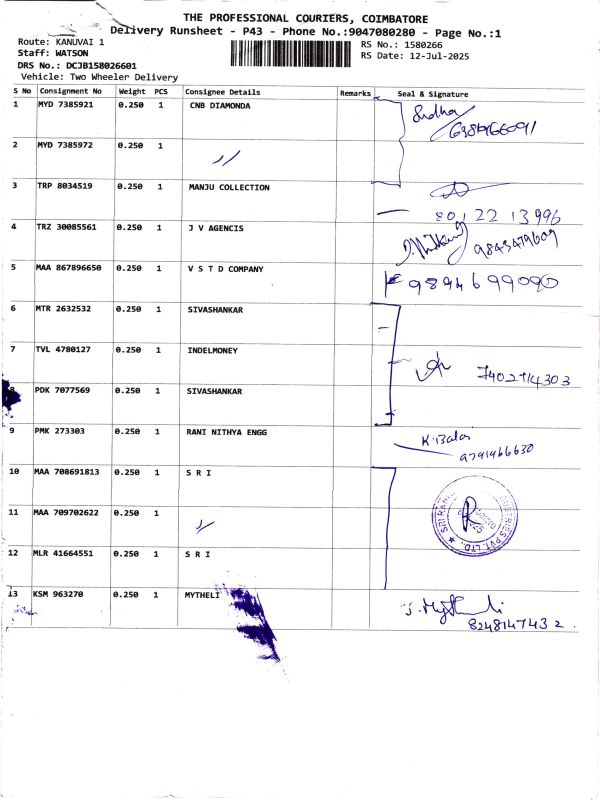 THE PROFESSIONAL COURIERS, COIMBATORE
Delivery Runsheet - P43 - Phone No.:9047080280 - Page No.:1
Route: KANUVAI 1
Staff: WATSON
DRS No.: DCJB158026601
Vehicle: Two Wheeler Delivery
RS No.: 1580266
RS Date: 12-Jul-2025
S No Consignment No Weight PCS Consignee Details Remarks Seal & Signature
1 MYD 7385921 0.250 1 CNB DIAMONDA Sudha
2 MYD 7385972 0.250 1 〃
3 TRP 8034519 0.250 1 MANJU COLLECTION
80122 13996
4 TRZ 30085561 0.250 1 J V AGENCIS
5 MAA 867896650 0.250 1 V S T D COMPANY 9894699090
6 MTR 2632532 0.250 1 SIVASHANKAR
7 TVL 4780127 0.250 1 INDELMONEY 7402914303
8 PDK 7077569 0.250 1 SIVASHANKAR
9 PMK 273303 0.250 1 RANI NITHYA ENGG K.Bala
9791966630
10 MAA 708691813 0.250 1 S R I
11 MAA 709702622 0.250 1 〃
12 MLR 41664551 0.250 1 S R I
13 KSM 963270 0.250 1 MYTHELI
8248147432